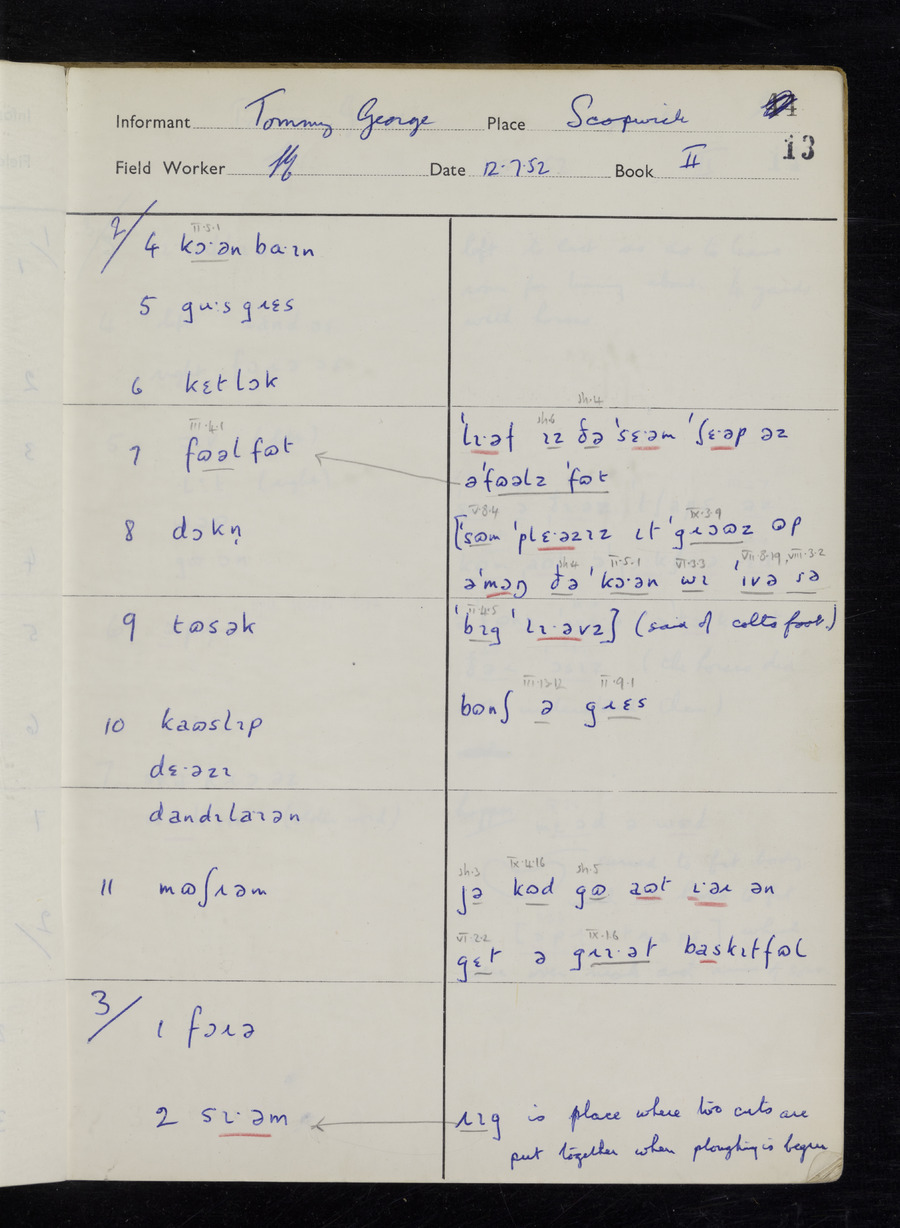 Informant Tommy George Place Scopwick 44
13
Field Worker Date 12·7·52 Book II
2/
II·5·1
4 kɔ·ən ba·ɪn
5 gu·s gɹɛs
6 kɛtlɔk
III·4·1
7 fʊəlfʊt
8 dɔkn̩
9 tʊsək
10 kaʊslɪp
dɛ·əzɪ
dandɪlaɪən
11 mʊʃɹəm
3/
1 fɔɹə
2 sɪ·əm
sh·4
sh·6
ˈlɪ·əf ɪz ðə ˈsɛ·əm ˈʃɛ·əp əz
əˈfʊəlz ˈfʊt
V·8·4 IX·3·9
[ˈsʊm ˈplɛ·əzɪz ɪt ˈgɹɔʊz ʊp
sh·4 II·5·1 VI·3·3 VII·8·19, VIII·3·2
əˈməŋ ðə ˈkɔ·ən wɪ ˈɪvə sə
II·4·5
ˈbɪg ˈlɪ·əvz] (said of coltsfoot.)
III·13·12 II·9·1
bʊnʃ ə gɹɛs
sh·3 IX·4·16 sh·5
jə kʊd gʊ aʊt ɪ·əɹ ən
VI·2·2 IX·1·6
gɛt ə gɹɪ·ət baskɪtfʊl
ɹɪg is place where two cuts are
put together when ploughing is begun